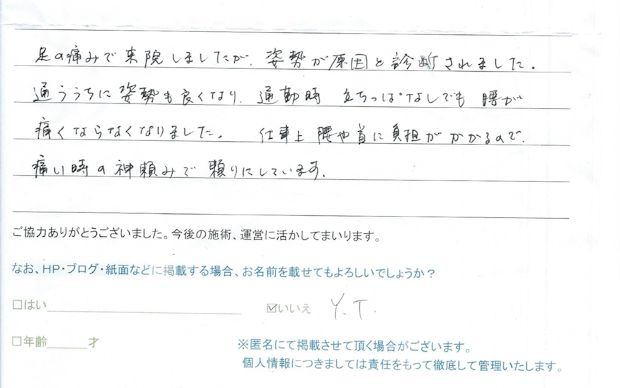 足の痛みで来院しましたが、姿勢が原因と診断されました。
通ううちに姿勢も良くなり、通勤時 立ちっぱなしでも 腰が
痛くならなくなりました。 仕事上 腰や首に負担がかかるので、
痛い時の神頼みで頼りにしています。
ご協力ありがとうございました。今後の施術、運営に活かしてまいります。
なお、HP・ブログ・紙面などに掲載する場合、お名前を載せてもよろしいでしょうか？
□はい ☑いいえ Y.T.
□年齢 才 ※匿名にて掲載させて頂く場合がございます。
個人情報につきましては責任をもって徹底して管理いたします。